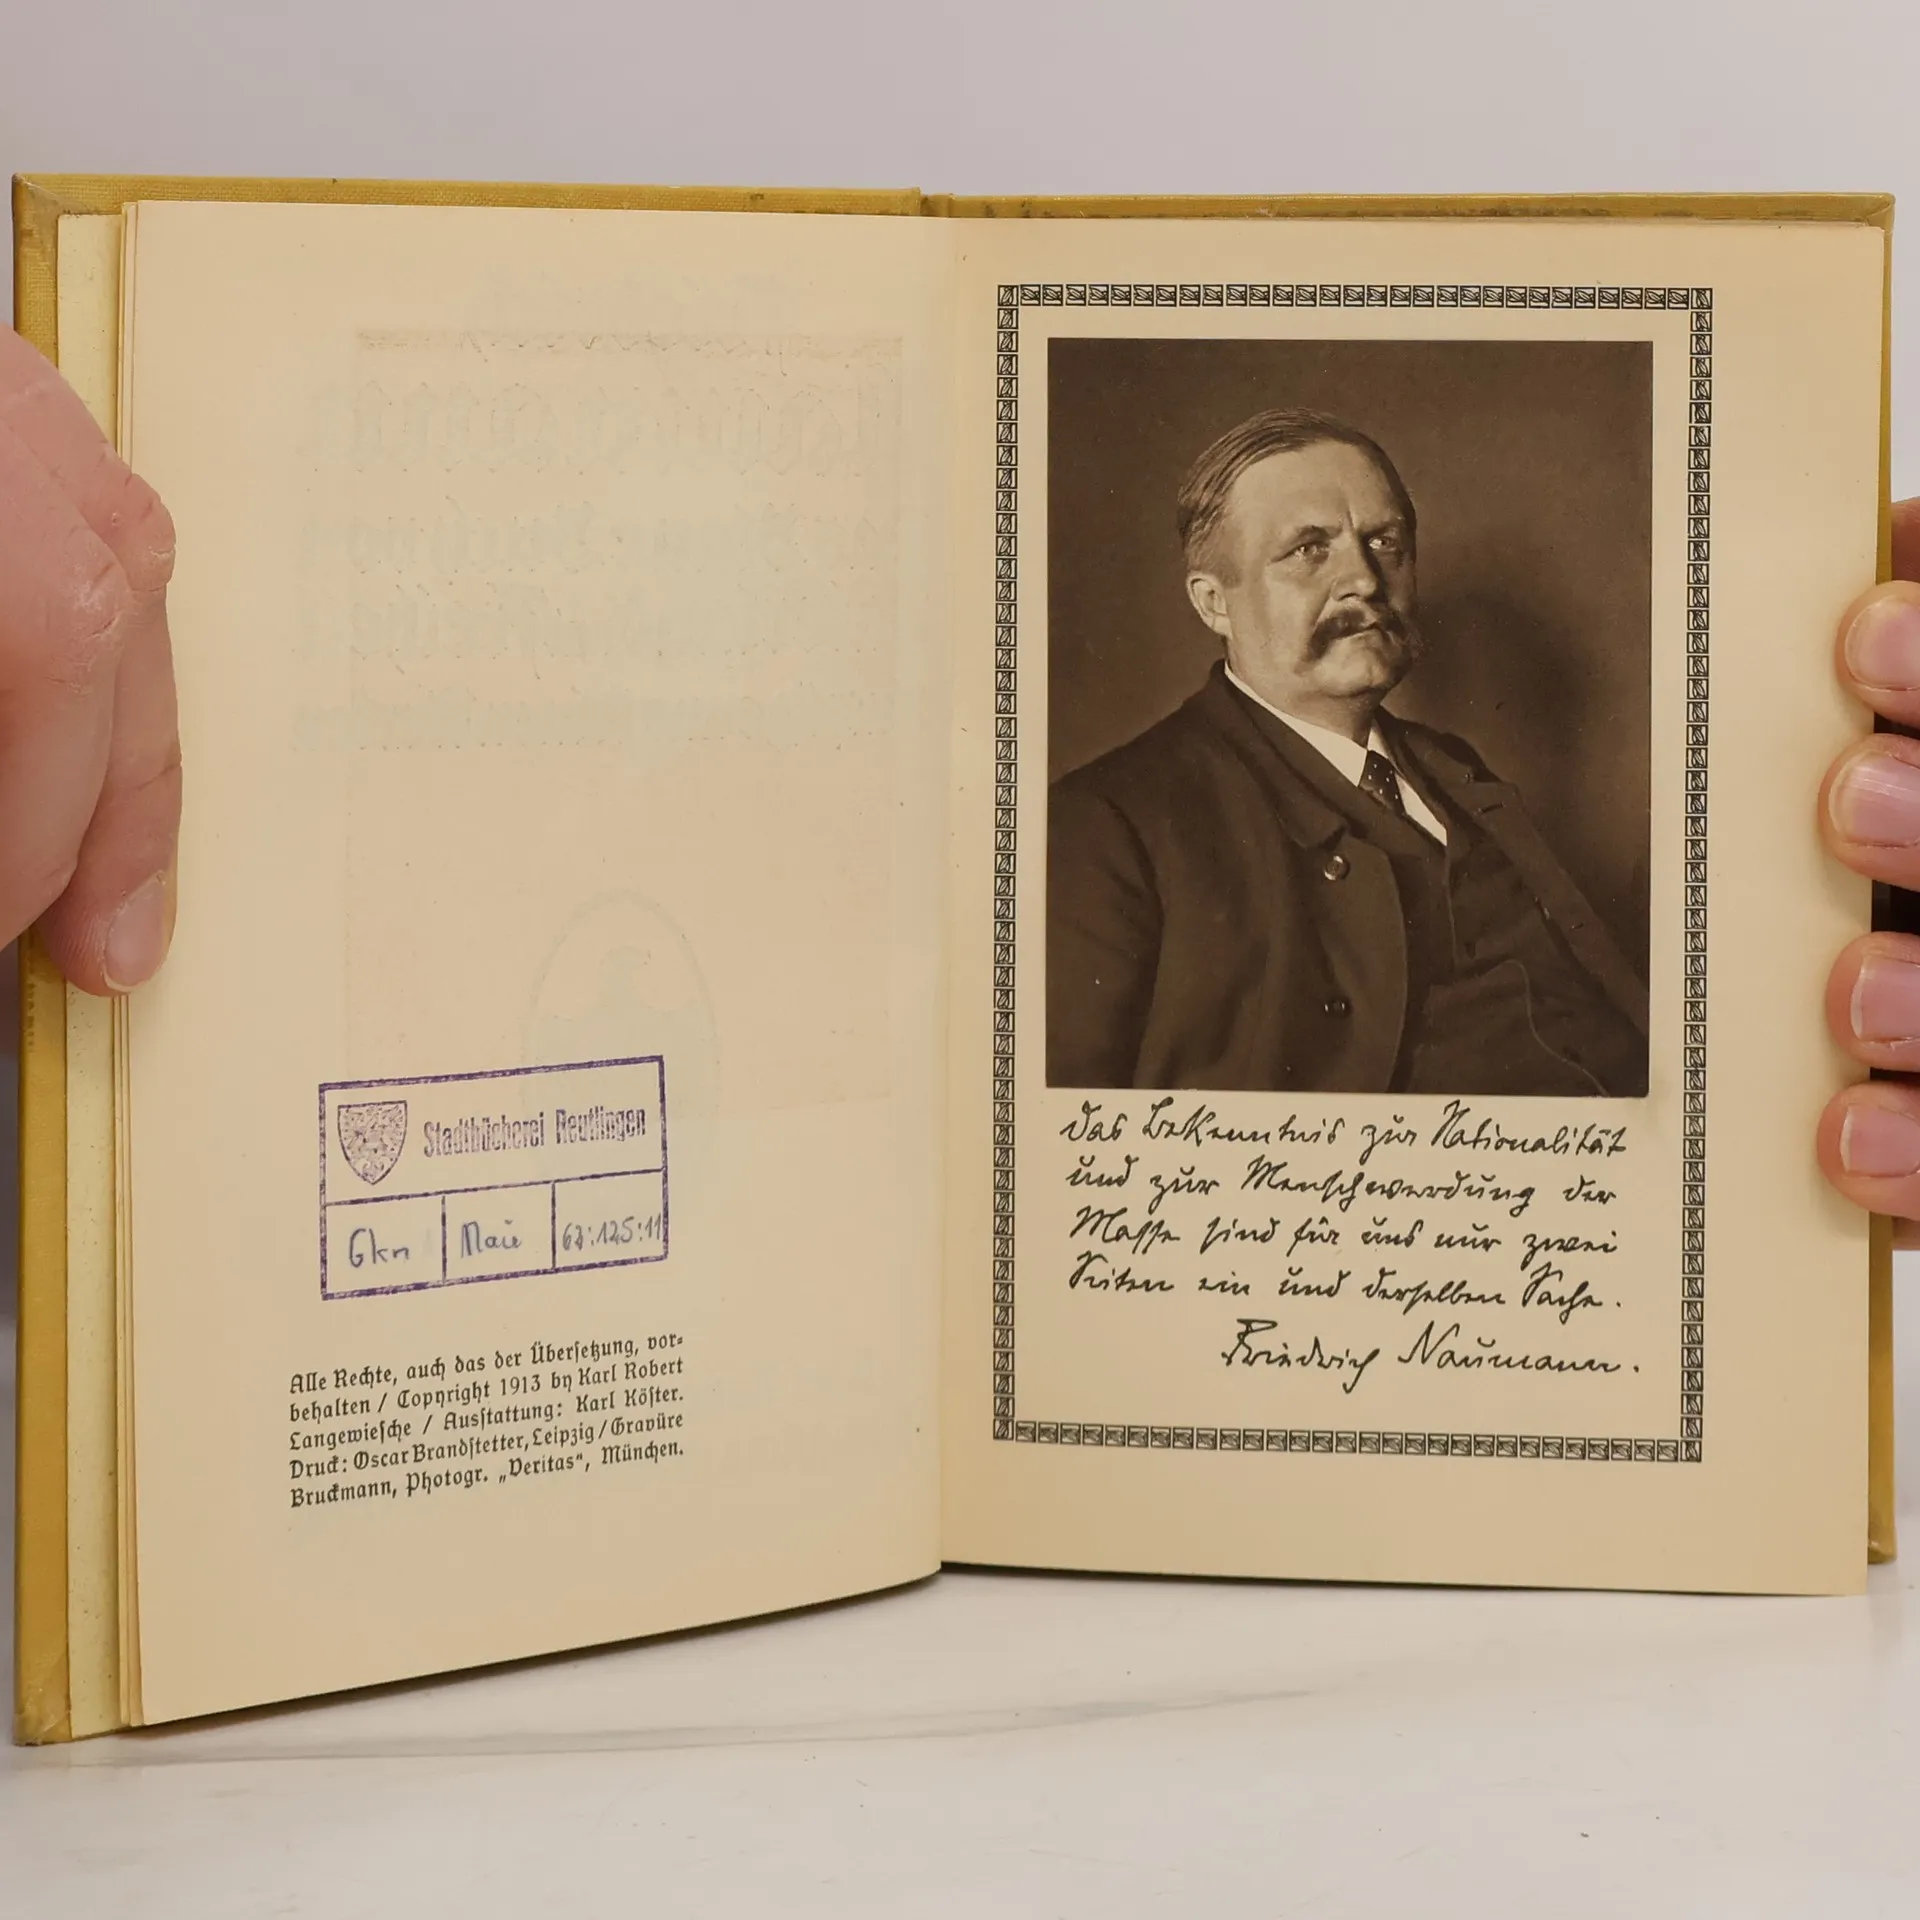 Stadtbücherei Reutlingen
Gkn
62:125:11
Alle Rechte, auch das der Übersetzung, vor-
behalten / Copyright 1913 by Karl Robert
Langewiesche / Ausstattung: Karl Köster.
Druck: Oscar Brandstetter, Leipzig / Gravüre
Bruckmann, Photogr. „Veritas“, München.
Das Bekenntnis zur Nationalität
und zur Menschwerdung der
Masse sind für uns nur zwei
Seiten ein und derselben Sache.
Friedrich Naumann.